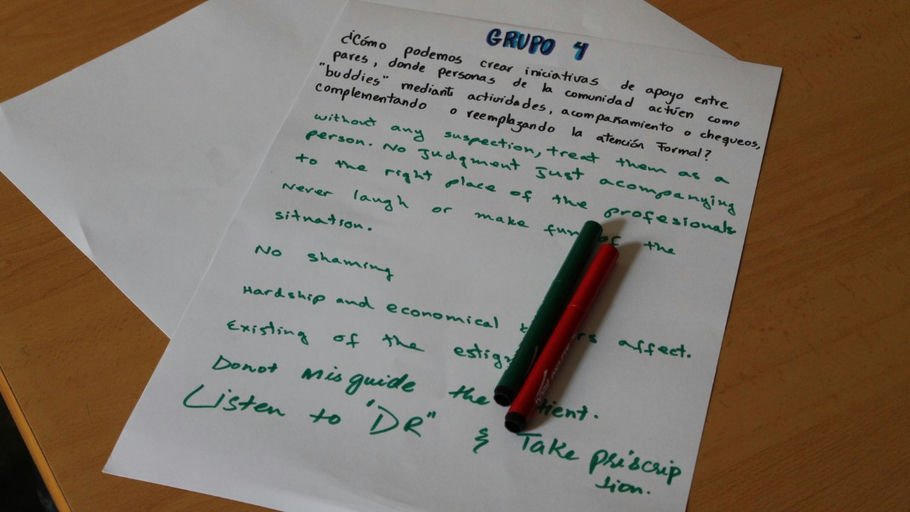 GRUPO 4
¿Cómo podemos crear iniciativas de apoyo entre
pares, donde personas de la comunidad actúen como
"buddies" mediante actividades, acompañamiento o chequeos,
complementando o reemplazando la atención Formal?
without any suspection, treat them as a
person. No Judgment Just acompanying
to the right place of the profesionals
Never laugh or make fun of the
situation.
No shaming
Hardship and economical affect.
Existing of the
Donot misguide the
Listen to "DR" & Take priscrip
tion.